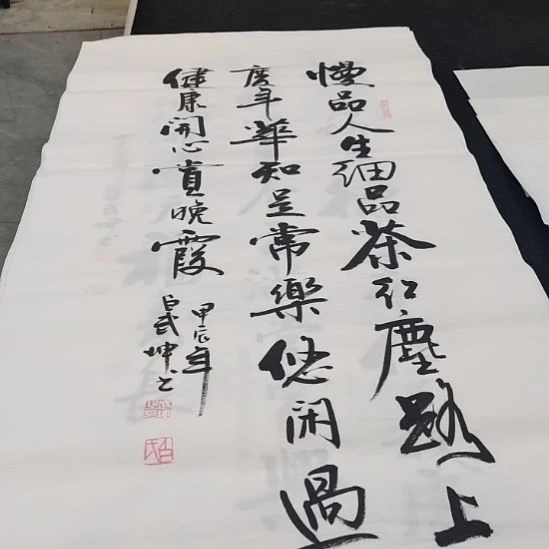 慢品人生细品茶红塵路上
度年華知足常樂悠闲過
健康開心賞晚霞
甲辰年